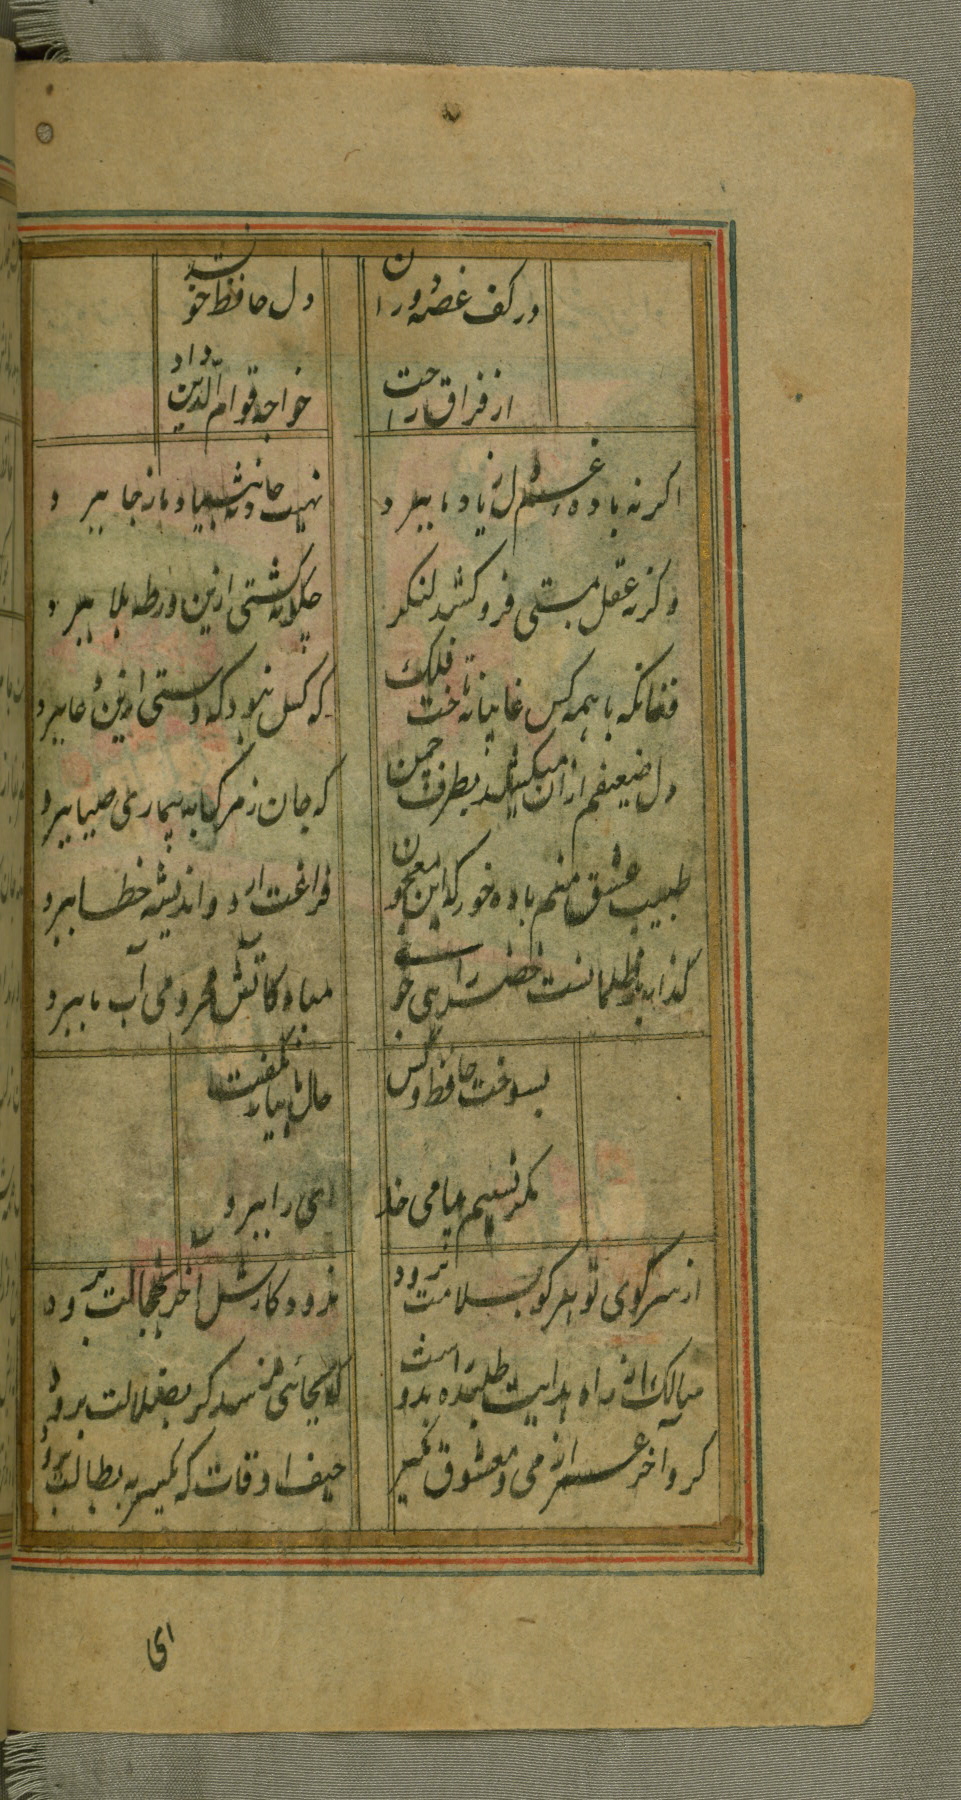 در کف غصهٔ دوران دل حافظ خون شد
از فراق رخت ای خواجه قوام الدین داد
اگر نه باده غم دل ز یاد ما ببرد نهیب حادثه بنیاد ما ز جا ببرد
وگر نه عقل بمستی فرو کشد لنگر چگونه کشتی ازین ورطه بلا ببرد
فغانکه با همه کس غایبانه باخت فلک که کس نبود که دستی ازین دغا ببرد
دل ضعیفم از ان میکشد بطرف چمن که جان ز مرگ به بیماری صبا ببرد
طبیب عشق منم باده خور که این معجون فراغت ارد و اندیشه خطا ببرد
گذار بر ظلماتست خضر راهی جو مباد کاتش محرومی آب ما ببرد
بسوخت حافظ و کس حال او بیار نگفت
مگر نسیم پیامی خدای را ببرد
از سر کوی تو هر کو بملامت برود نرود کارش و آخر بخجالت برود
سالک از راه هدایت طلبد راه بدوست که بجائی نرسد گر بضلالت برود
گرو آخر عمر از می و معشوق بگیر حیف اوقات که یکسر به بطالت برود
ای